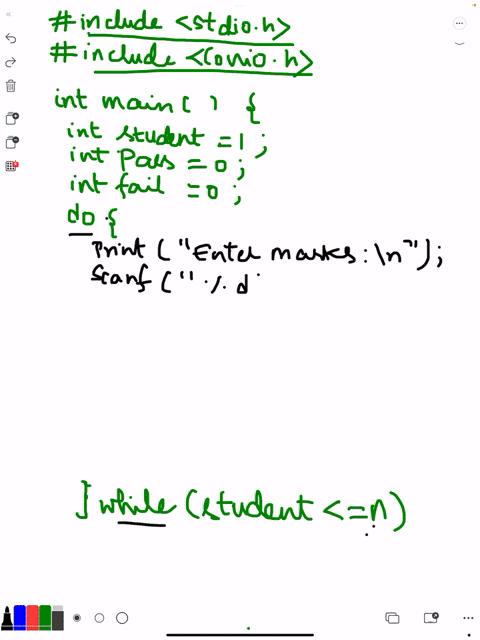 # include <stdio.h>
# include <conio.h>
int main( ) {
int student = 1 ;
int Pass = 0 ;
int fail = 0 ;
do {
Print ("Enter marks : \n") ;
Scanf (" % d
} while (student <= n)